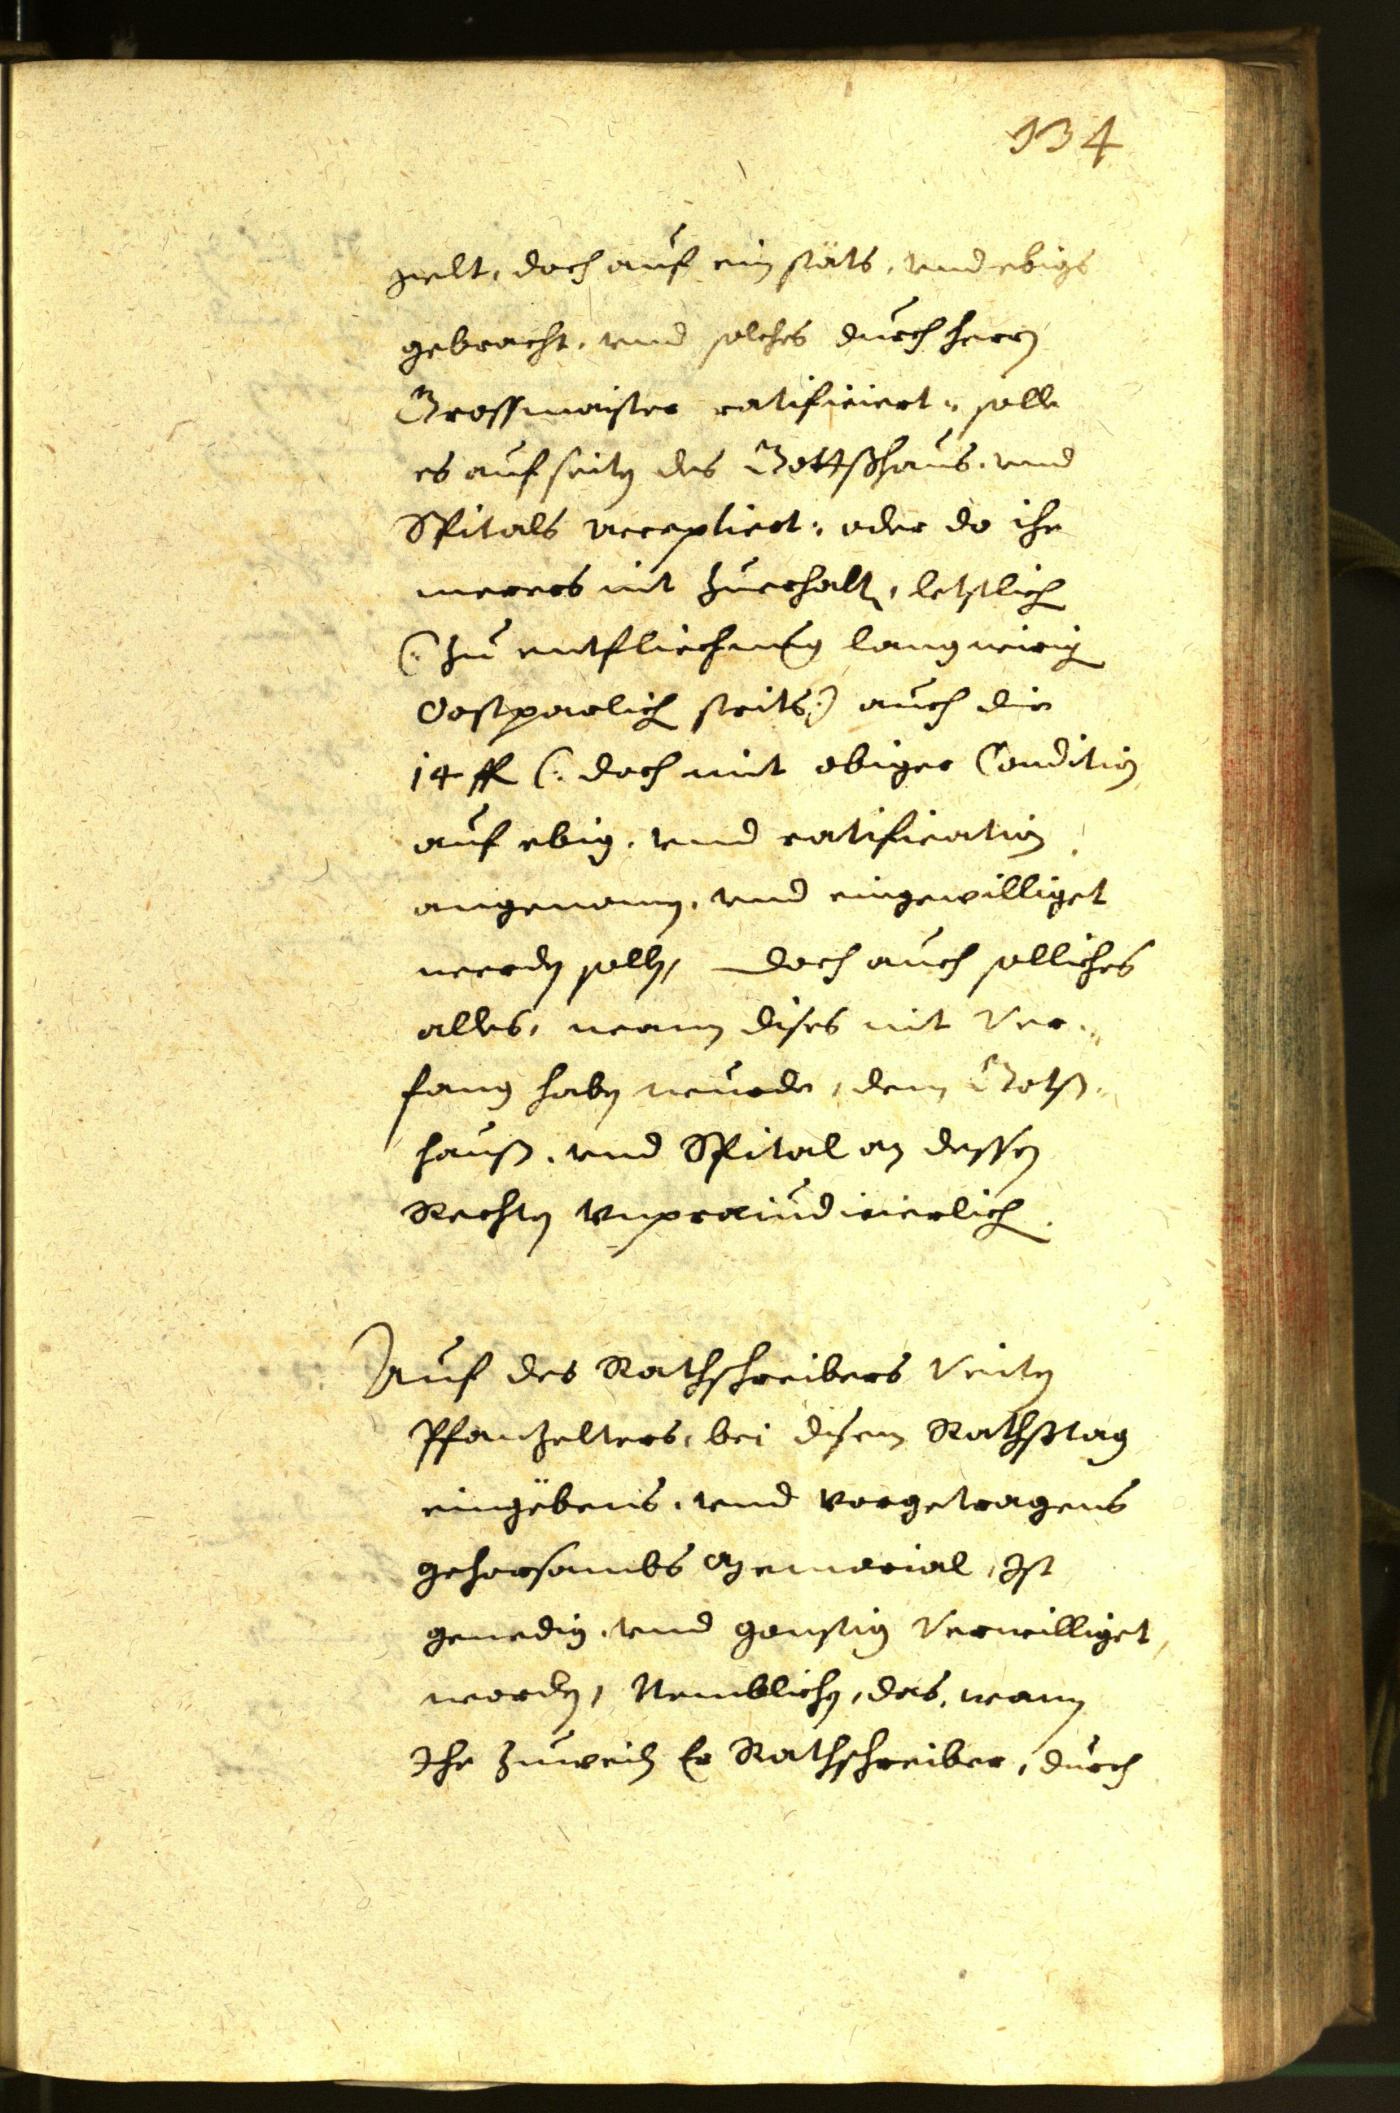 134
zelt, doch auf ein stäts, vnd ebigs
gebracht, vnd solches durch herrn
Grossmaister ratificiert, solle
es auf seiten des Gottßhaus, vnd
Spitals acceptiert, oder do ihe
merers nit zuerhalten, letstlich
(: zu entfliechung langwirig
Costparlich streits :) auch die
14 fl (: doch mit obiger Condition
auf ebig, vnd ratification
angenomen, vnd eingewilliget
werden sollen, doch auch solliches
alles, wann dises nit Ver-
fang haben wurde, dem Gotß-
hauß, vnd Spital an dessen
Rechten vnpraeiudicierlich.
Auf des Rathschreibers Veiten
Pfanzelters, bei disem Rathßtag
eingebens, vnd vorgetragens
gehorsambs Memorial, Ist
genedig, vnd gonstig Verwilliget
worden, Nemblichen, das, wann
Ihe zuweilen Er Rathschreiber, durch